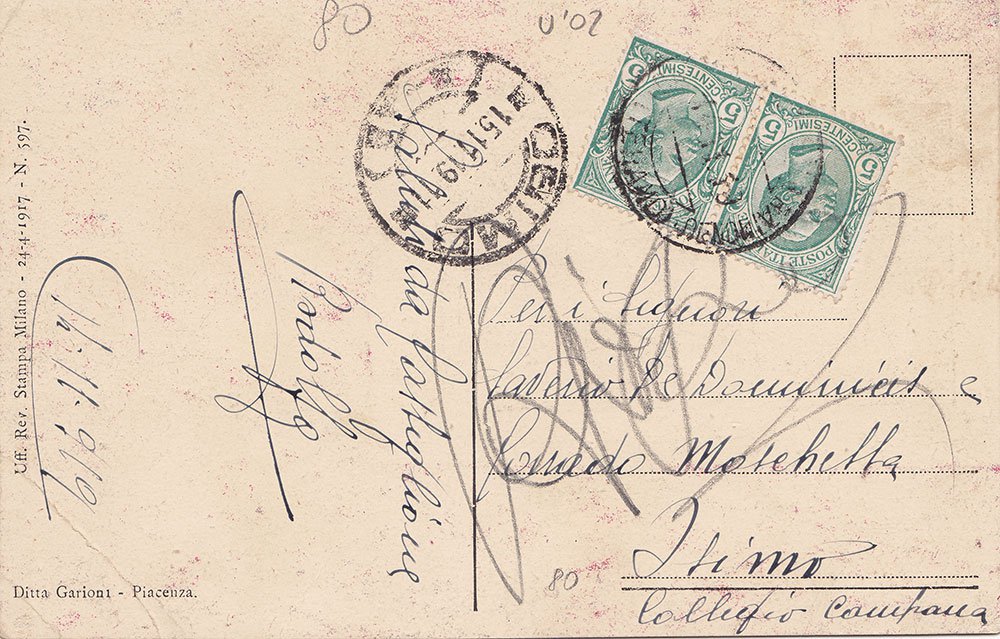 80
U'02
Uff. Rev. Stampa Milano - 24-4-1917 - N. 597.
Ditta Garioni - Piacenza.
14.11.919
Saluti da Castiglione
Rodolfo
OSIMO
15.11.19
5 CENTESIMI 5
5 CENTESIMI 5
POSTE ITAL
Per i Signori
Saverio De Dominicis e
Corrado Moschetta
Osimo
Collegio Campana
80